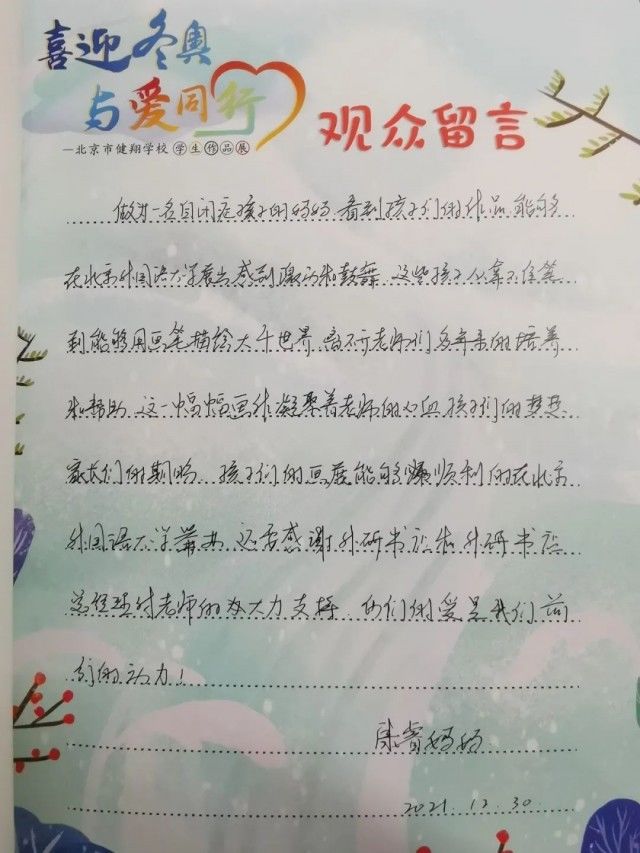 喜迎冬奥
与爱同行
—北京市健翔学校学生作品展
观众留言
做为一名自闭症孩子的妈妈 看到孩子们的作品能够
在北京外国语大学展出感到激动和鼓舞 这些孩子从拿不住笔
到能够用画笔描绘大千世界 离不开老师们多年来的培养
和帮助 这一幅幅画作凝聚着老师的心血 孩子们的梦想
家长们的期盼 孩子们的画展能够 顺利的在北京
外国语大学举办 还要感谢外研书店 外研书店
付老师的大力支持 你们的爱是我们前
行的动力!
妈妈
2021.12.30